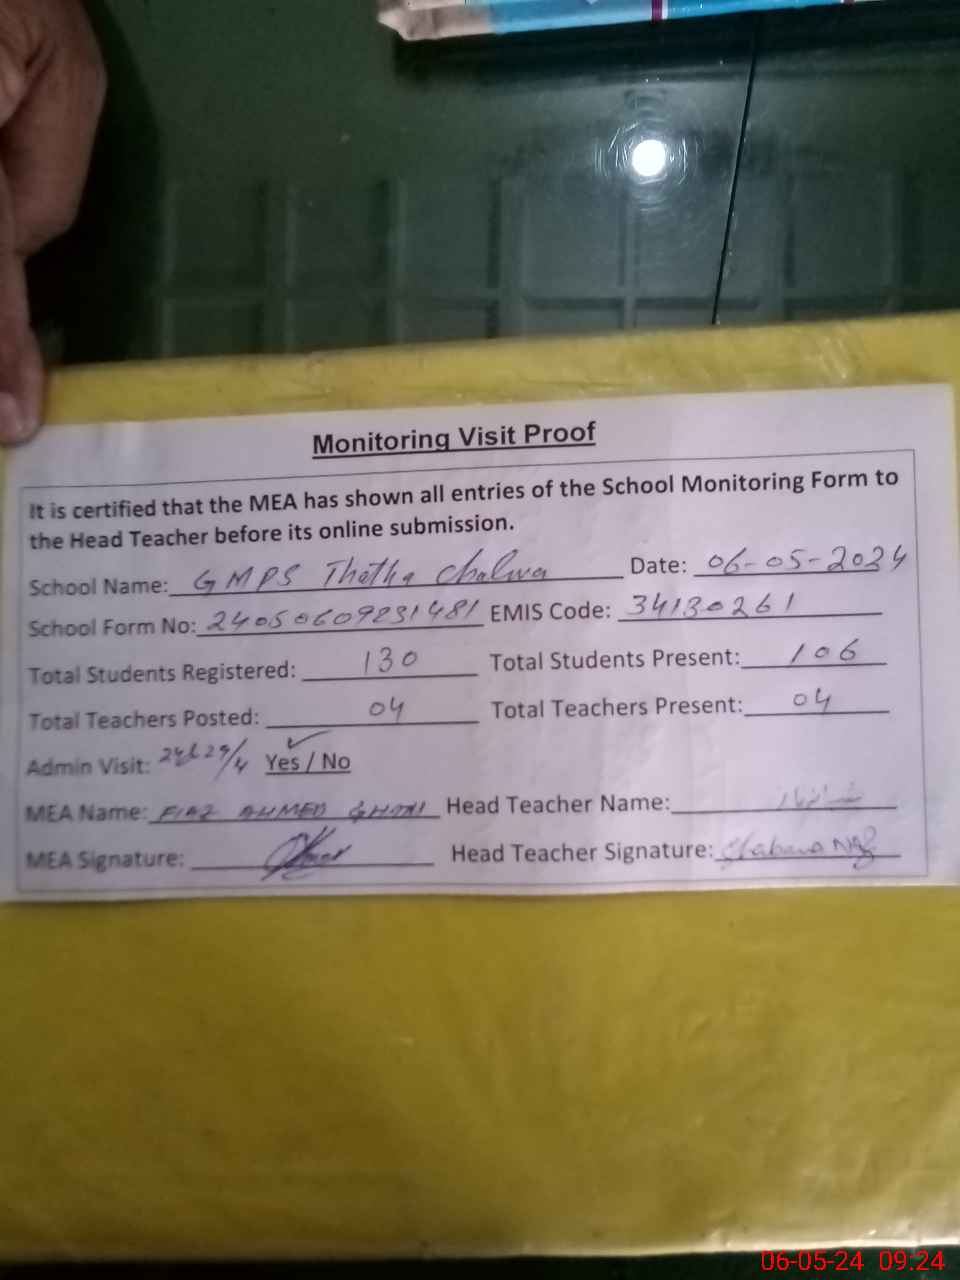 Monitoring Visit Proof
It is certified that the MEA has shown all entries of the School Monitoring Form to
the Head Teacher before its online submission.
School Name: GMPS Thatha Chalwa Date: 06-05-2024
School Form No: 24050609231481 EMIS Code: 34130261
Total Students Registered: 130 Total Students Present: 106
Total Teachers Posted: 04 Total Teachers Present: 04
Admin Visit: Yes / No
MEA Name: FIAZ AHMED Head Teacher Name: شبانہ ناز
MEA Signature: Head Teacher Signature: Shabana Naz
06-05-24 09:24